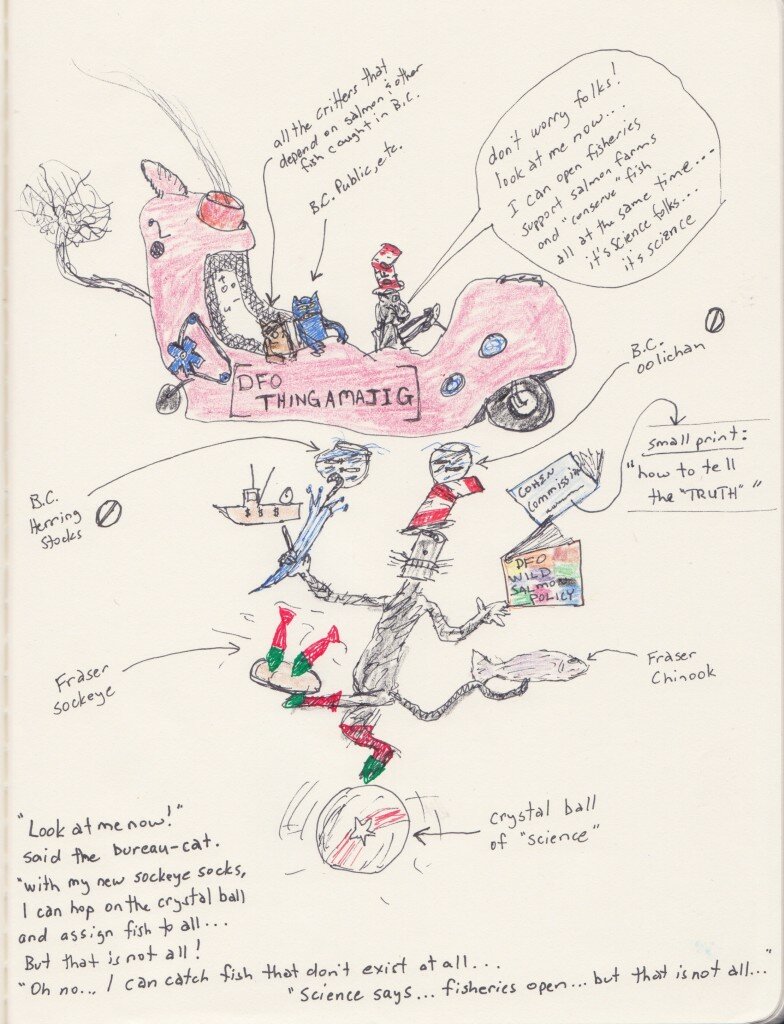 all the critters that
depend on salmon & other
fish caught in B.C.
B.C. Public, etc.
don't worry folks!
look at me now...
I can open fisheries
support salmon farms
and "conserve" fish
all at the same time...
it's science folks...
it's science
[DFO
THINGAMAJIG]
B.C.
oolichan
small print:
"how to tell
the "TRUTH""
COHEN
Commission
B.C.
Herring
Stocks
$ $ $
DFO
WILD
SALMON
POLICY
Fraser
Sockeye
Fraser
Chinook
crystal ball
of "science"
"Look at me now!"
said the bureau-cat.
"with my new sockeye socks,
I can hop on the crystal ball
and assign fish to all...
But that is not all!
"Oh no... I can catch fish that don't exist at all...
"Science says... fisheries open... but that is not all..."